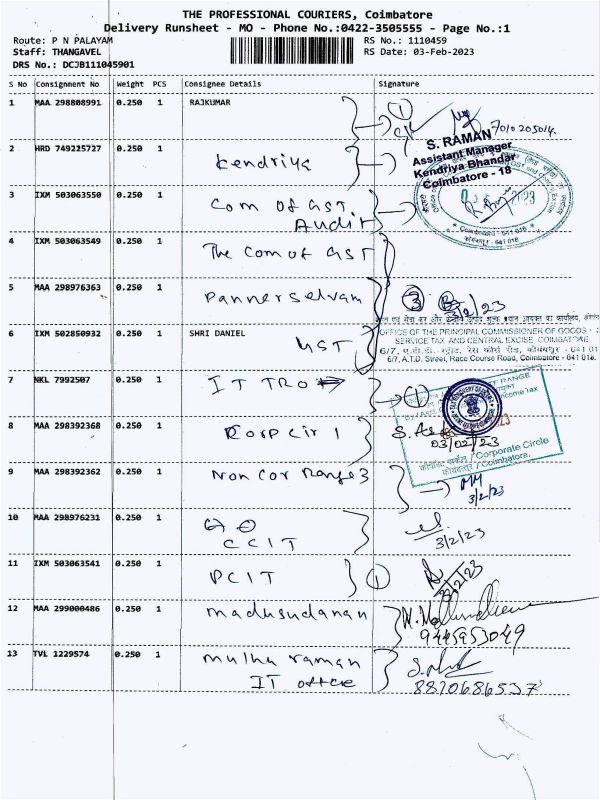 THE PROFESSIONAL COURIERS, Coimbatore
Delivery Runsheet - MO - Phone No.:0422-3505555 - Page No.:1
Route: P N PALAYAM
RS No.: 1110459
Staff: THANGAVEL
RS Date: 03-Feb-2023
DRS No.: DCJB111045901
S No Consignment No Weight PCS Consignee Details Signature
1 MAA 298808991 0.250 1 RAJKUMAR
1
7010205014.
2 HRD 749225727 0.250 1 Kendriya
S. RAMAN
Assistant Manager
Kendriya Bhandar
Coimbatore - 18
3 IXM 503063550 0.250 1 Com of GST
Audit
Coimbatore - 641 018
कोयंबत्तूर - 641 018
4 IXM 503063549 0.250 1 The Com of GST
5 MAA 298976363 0.250 1 Pannerselvam
3 3/2/23
6 IXM 502850932 0.250 1 SHRI DANIEL
GST
OFFICE OF THE PRINCIPAL COMMISSIONER OF GOODS
SERVICE TAX AND CENTRAL EXCISE, COIMBATORE
6/7, ए.टी.डी. स्ट्रीट, रेस कोर्स रोड, कोयंबत्तूर - 641 01
6/7, A.T.D. Street, Race Course Road, Coimbatore - 641 018.
7 NKL 7992507 0.250 1 IT TRO
1
8 MAA 298392368 0.250 1 Corp Cir 1
03/02/23
Corporate Circle
कोयंबत्तूर / Coimbatore.
9 MAA 298392362 0.250 1 Non Cor Range 3
3/2/23
10 MAA 298976231 0.250 1
CCIT
3/2/23
11 IXM 503063541 0.250 1 PCIT
1
3/2/23
12 MAA 299000486 0.250 1 Madusudanan
9445953049
13 TVL 1229574 0.250 1 Muthu raman
IT office
8870686537